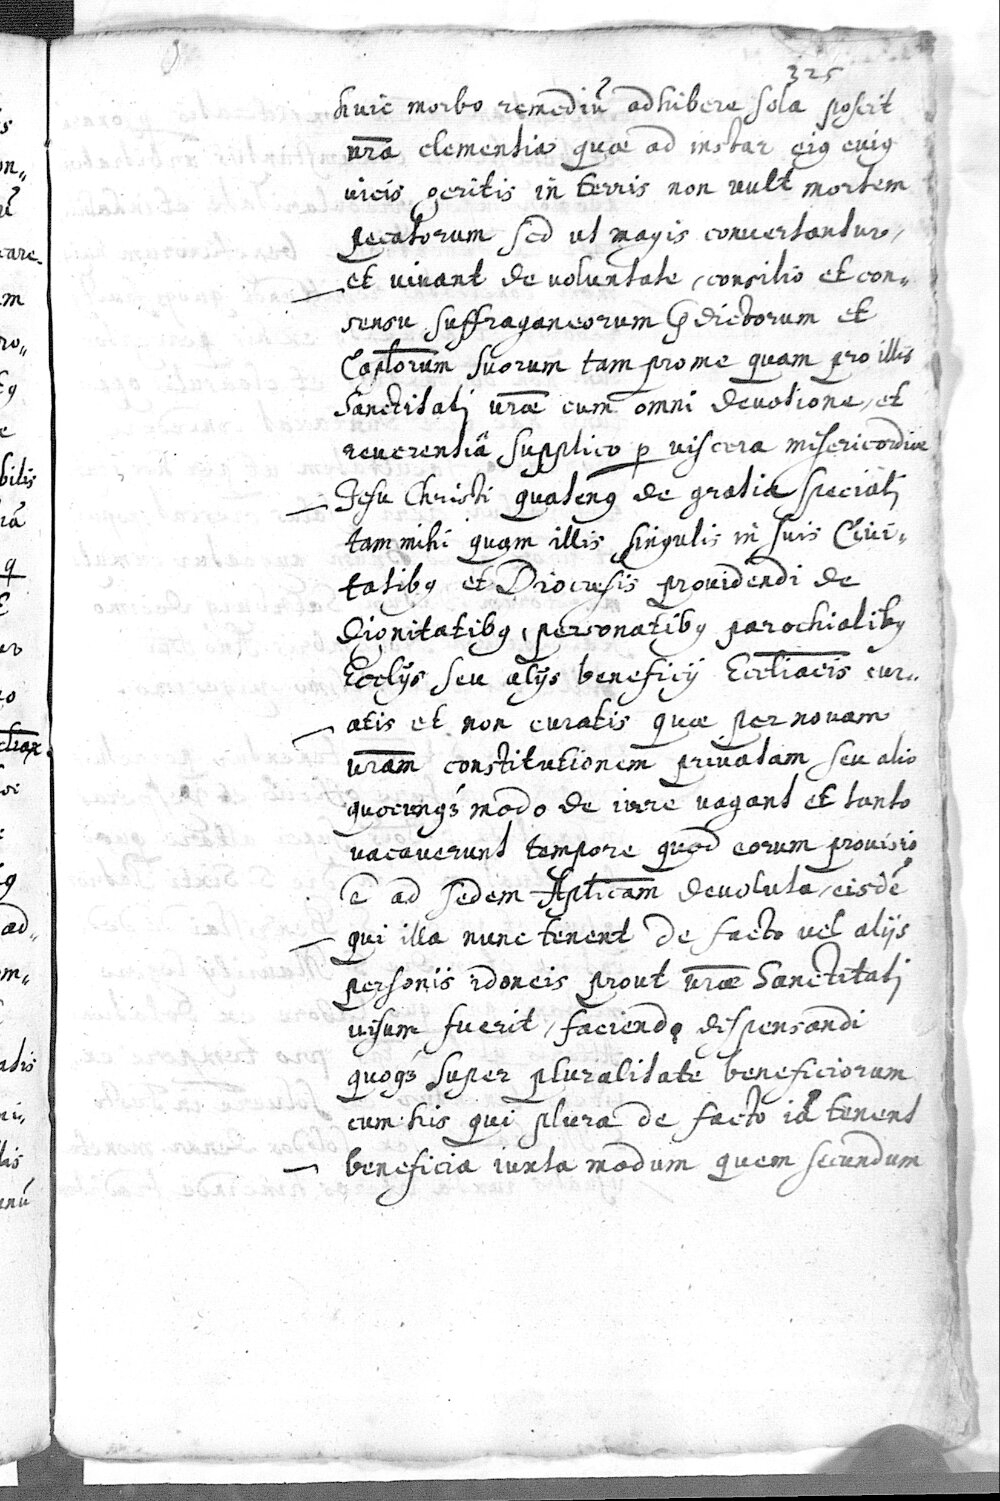 325
huic morbo remediũ adhibere sola poscit
vrã clementia quae ad instar eiꝰ cuiꝰ
vicis geritis in terris non vult mortem
pecatorum sed ut magis convertantur,
et vivant de voluntate, consilio et con„
sensu suffraganeorum p̃dictorum et
Capl̃orum suorum tam pro me quam pro illis
Sanctitatj vrae cum omni devotione, et
reverentiâ supplico ꝑ viscera misericordiae
Jesu Christi quatenꝰ de gratia specialj
tam mihi quam illis singulis in suis Civi„
tatibꝰ et Diocesis providendi de
dignitatibꝰ, personatibꝰ parochialibꝰ
Eccl̃ijs seu alijs beneficij Eccl̃iacis cur„
atis et non curatis quae per novam
vram constitutionem privatam seu alio
quocunqꝫ modo de iure vagant et tanto
vacaverunt tempore quod eorum provisio
e ad sedem Apl̃icam devoluta, eisdẽ
qui illa nunc tenent de facto vel alijs
personiis idoneis prout vrae Sanctitatj
visum fuerit, faciendo, dispensandi
quoqꝫ super pluralitate beneficiorum
cum his qui plura de facto iã tenent
beneficia iuxta modum quem secundum